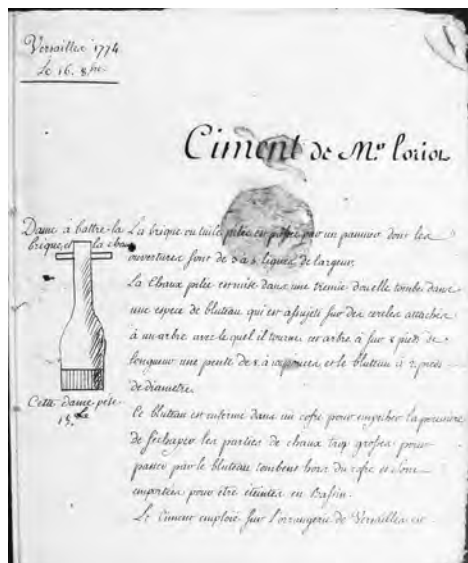 Versailles 1774
Le 16. 8bre
Ciment de Mr. Loriot
Dame à battre la
brique, et la chaux
La brique ou tuile pilée est passée par un panneau dont les
ouvertures sont de 3 à 4 lignes de largeur,
La Chaux pilée est mise dans une tremie d'ou elle tombe dans
une espece de bluteau qui est assujeti sur des cercles attachés
à un arbre avec le quel il tourne cet arbre à sur 8 pieds de
longueur une pente de 8 à 10 pouces et le bluteau à 2 pieds
de diametre.
Cette dame pese
15 Le
Ce bluteau est enfermé dans un cofre pour empecher la poussiere
de s'echaper les parties de chaux trop grosses pour
passer par le bluteau tombent hors du cofre et sont
emportées pour être éteintes en Bassin.
Le Ciment emploié sur l'orrangerie de Versailles est